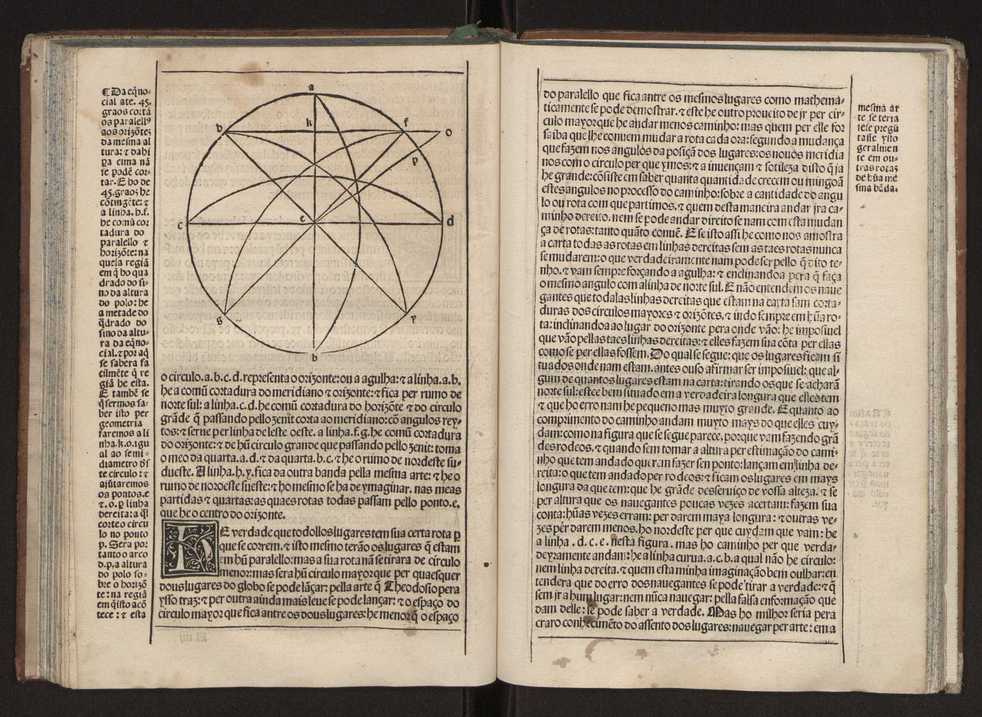 ¶ Da eq̃no-
cial ate .45.
graos cortã
os paralellos
aos orizõtes
da mesma al
tura: ⁊ dahi
pa cima nã
se podẽ cor-
tar. E ho de
45. graos he
cõtingẽte: ⁊
a linha. b.f.
he comũ cor
tadura do
paralello ⁊
horizõte: na
quela regiã
em q̃ ho qua
drado do si-
no da altura
do polo: he
a metade do
q̃drado do
sino da altu-
ra da eq̃no-
cial. ⁊ por aq̃
se sabera fa
cilmẽte q̃ re
giã he esta.
E tambẽ se
q̃sermos sa-
ber isto per
geometria
faremos a li
nha.k.o.igu
al ao semi-
diametro d̃s
te circulo: ⁊
ajũtaremos
os pontos.e
⁊.o. p linha
dereita: a q̃l
corte o circu
lo no ponto
p. Sera por
tanto o arco
d.p. a altura
do polo so-
bre o horizõ
te: na regiã
em q̃ isto acõ
tece: ⁊ esta
a
b k f o
p
c e d
g r
b
o circulo. a. b. c. d. representa o orizonte: ou a agulha: ⁊ a linha. a. b.
he a comũ cortadura do meridiano ⁊ orizonte: ⁊ fica per rumo de
norte sul: a linha. c. d. he comũ cortadura do horizõte ⁊ do circulo
grãde q̃ passando pello zenit corta ao meridiano: cõ angulos rey-
tos: ⁊ serue per linha de leste oeste. a linha. f. g. he comũ cortadura
do orizonte: ⁊ de hũ circulo grande que passando pello zenit: toma
o meo da quarta. a. d. ⁊ da quarta. b. c. ⁊ he o rumo de nordeste su-
dueste. A linha. h. y. fica da outra banda pella mesma arte: ⁊ he o
rumo de noroeste sueste: ⁊ ho mesmo se ha de ymaginar. nas meas
partidas ⁊ quartas: as quaes rotas todas passam pello ponto. e.
que he o centro do orizonte.
E verdade que todollos lugares tem sua certa rota p
que se correm. ⁊ isto mesmo terão os lugares q̃ estam
em hũ paralello: mas a sua rota nã se tirara de circulo
menor: mas sera hũ circulo mayor que per quaesquer
dous lugares do globo se pode lãçar: pella arte q̃ Theodosio pera
ysso traz: ⁊ per outra ainda mais leue se pode lançar: ⁊ o espaço do
circulo mayor que fica antre os dous lugares: he menor q̃ o espaço
do paralello que fica antre os mesmos lugares como mathema-
ticamente se pode demostrar. ⁊ este he outro proueito de jr per cir-
culo mayor que he andar menos caminho: mas quem per elle for
saiba que lhe conuem mudar a rota cada ora: segundo a mudança
que fazem nos angulos da posiçã dos lugares: os nouos meridia
nos com o circulo per que ymos: ⁊ a inuençam ⁊ sotileza disto q̃ ja
he grande: cõsiste em saber quanta quantidade crecem ou mingoã
estes angulos no processo do caminho: sobre a cantidade do angu
lo ou rota com que partimos. ⁊ quem desta maneira andar jra ca-
minho dereito. nem se pode andar direito se nam com esta mudan
ça de rotas: tanto quãto conuẽ. E se isto assi he como nos amostra
a carta todas as rotas em linhas dereitas sem as taes rotas nunca
se mudarem: o que verdadeiramente nam pode ser pello q̃ dito te-
nho. ⁊ vam sempre forçando a agulha: ⁊ enclinandoa pera q̃ faça
o mesmo angulo com a linha de norte sul. E não entendem os naue
gantes que todalas linhas dereitas que estam na carta sam corta-
duras dos circulos mayores ⁊ orizõtes. ⁊ indo sempre em hũa ro-
ta: inclinandoa ao lugar do orizonte pera onde vão: he impossiuel
que vão pellas taes linhas dereitas: ⁊ elles fazem sua cõta per ellas
como se per ellas fossem. Do qual se segue: que os lugares ficam si
tuados onde nam estam. antes ouso afirmar ser impossiuel: que al-
gum de quantos lugares estam na carta: tirando os que se acharã
norte sul: estee bem situado em a verdadeira longura que elles tem
⁊ que ho erro nam he pequeno mas muyto grande. E quanto ao
comprimento do caminho andam muyto mays do que elles cuy-
dam: como na figura que se segue parece. porque vam fazendo grã
des rodeos. ⁊ quando sem tomar a altura per estimação do cami-
nho que tem andado queram fazer seu ponto: lançam em linha de-
reita: o que tem andado per rodeos: ⁊ ficam os lugares em mays
longura da que tem: que he grãde desseruiço de vossa alteza. ⁊ se
per altura que os nauegantes poucas vezes acertam: fazem sua
conta: hũas vezes erram: per darem maya longura: ⁊ outras ve-
zes per darem menos. ho nordeste per que cuydam que vam: he
a linha .d.c.e. nesta figura. mas ho caminho per que verda-
deyramente andam: he a linha curua. a. c. b. a qual não he circulo:
nem linha dereita. ⁊ quem esta minha imaginação bem oulhar: en
tendera que do erro dos nauegantes se pode tirar a verdade: ⁊ q̃
sem jr a hum lugar: nem nũca nauegar: pella falsa enformação que
dam delle: se pode saber a verdade. Mas ho milhor seria pera
craro conhecimẽto do assento dos lugares: nauegar per arte: em a
mesma ar
te se teria
se se pregũ
tasse ysto
geralmen
te em ou-
tras rotas
de hũa me
sma bãda.